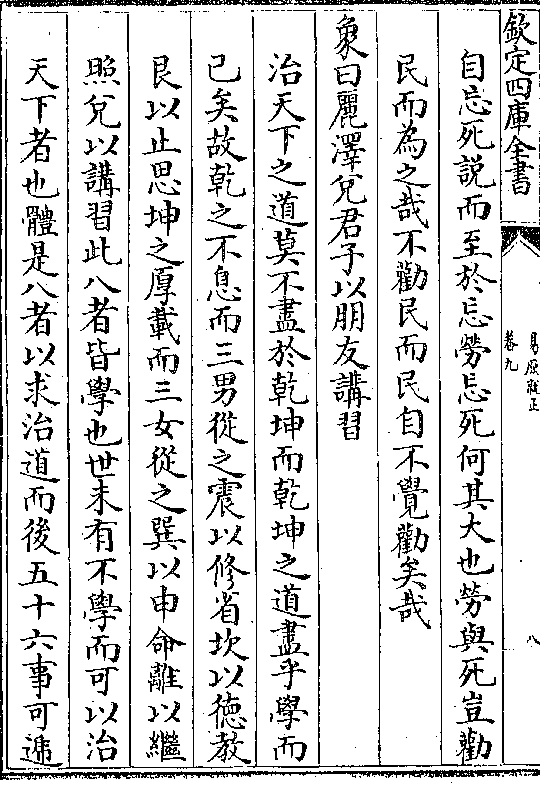 欽定四庫全書
易原就正
卷九
八
自忘死説而至於忘勞忘死何其大也勞與死豈勸
民而為之哉不勸民而民自不覺勸矣哉
象曰麗澤兌君子以朋友講習
治天下之道莫不盡於乾坤而乾坤之道盡乎學而
已矣故乾之不息而三男從之震以修省坎以德教
艮以止思坤之厚載而三女從之巽以申命離以繼
照兌以講習此八者皆學也世未有不學而可以治
天下者也體是八者以求治道而後五十六事可遞